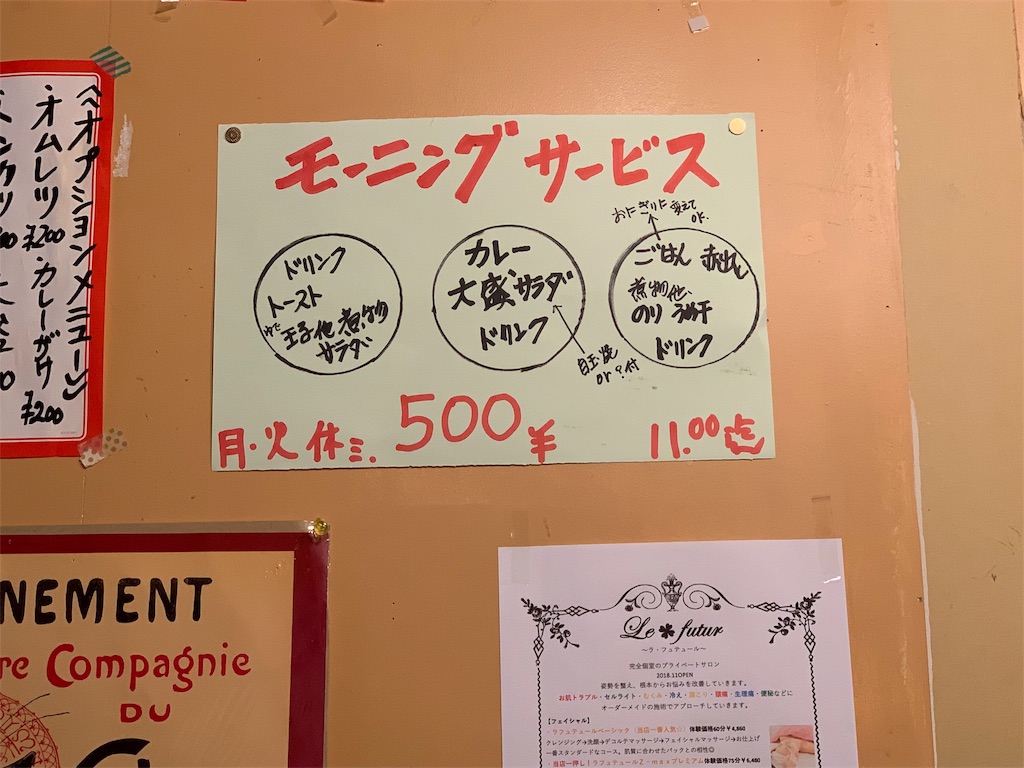 〈オプションメニュー〉
・オムレツ ¥200
・カレーがけ ¥200
モーニング サービス
ドリンク
トースト
ゆで玉子他 煮物
サラダ
カレー
大盛サラダ
ドリンク
目玉焼
or ? 付
おにぎりに変えて
OK.
ごはん 赤出し
煮物他
のり 梅干
ドリンク
月・火 休ミ. 500¥ 11.00迄
NEMENT
re Compagnie
DU
Le futur
～ラ・フュテュール～
完全個室のプライベートサロン
2018.11OPEN
姿勢を整え、根本からお悩みを改善していきます。
お肌トラブル・セルライト・むくみ・冷え・肩こり・頭痛・生理痛・便秘などに
オーダーメイドの施術でアプローチしていきます。
【フェイシャル】
・ラフュテュールベーシック（当店一番人気☆）体験価格60分￥4,860
クレンジング→洗顔→デコルテマッサージ→フェイシャルマッサージ→お仕上げ
一番スタンダードなコース。肌質に合わせたパックとの相性◎
・当店一押し！ラフュテュール2－maxプレミアム体験価格75分￥6,480